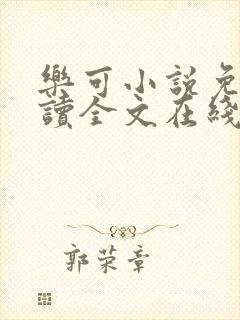 樂可小說免
讀全文在綫
郭荣章